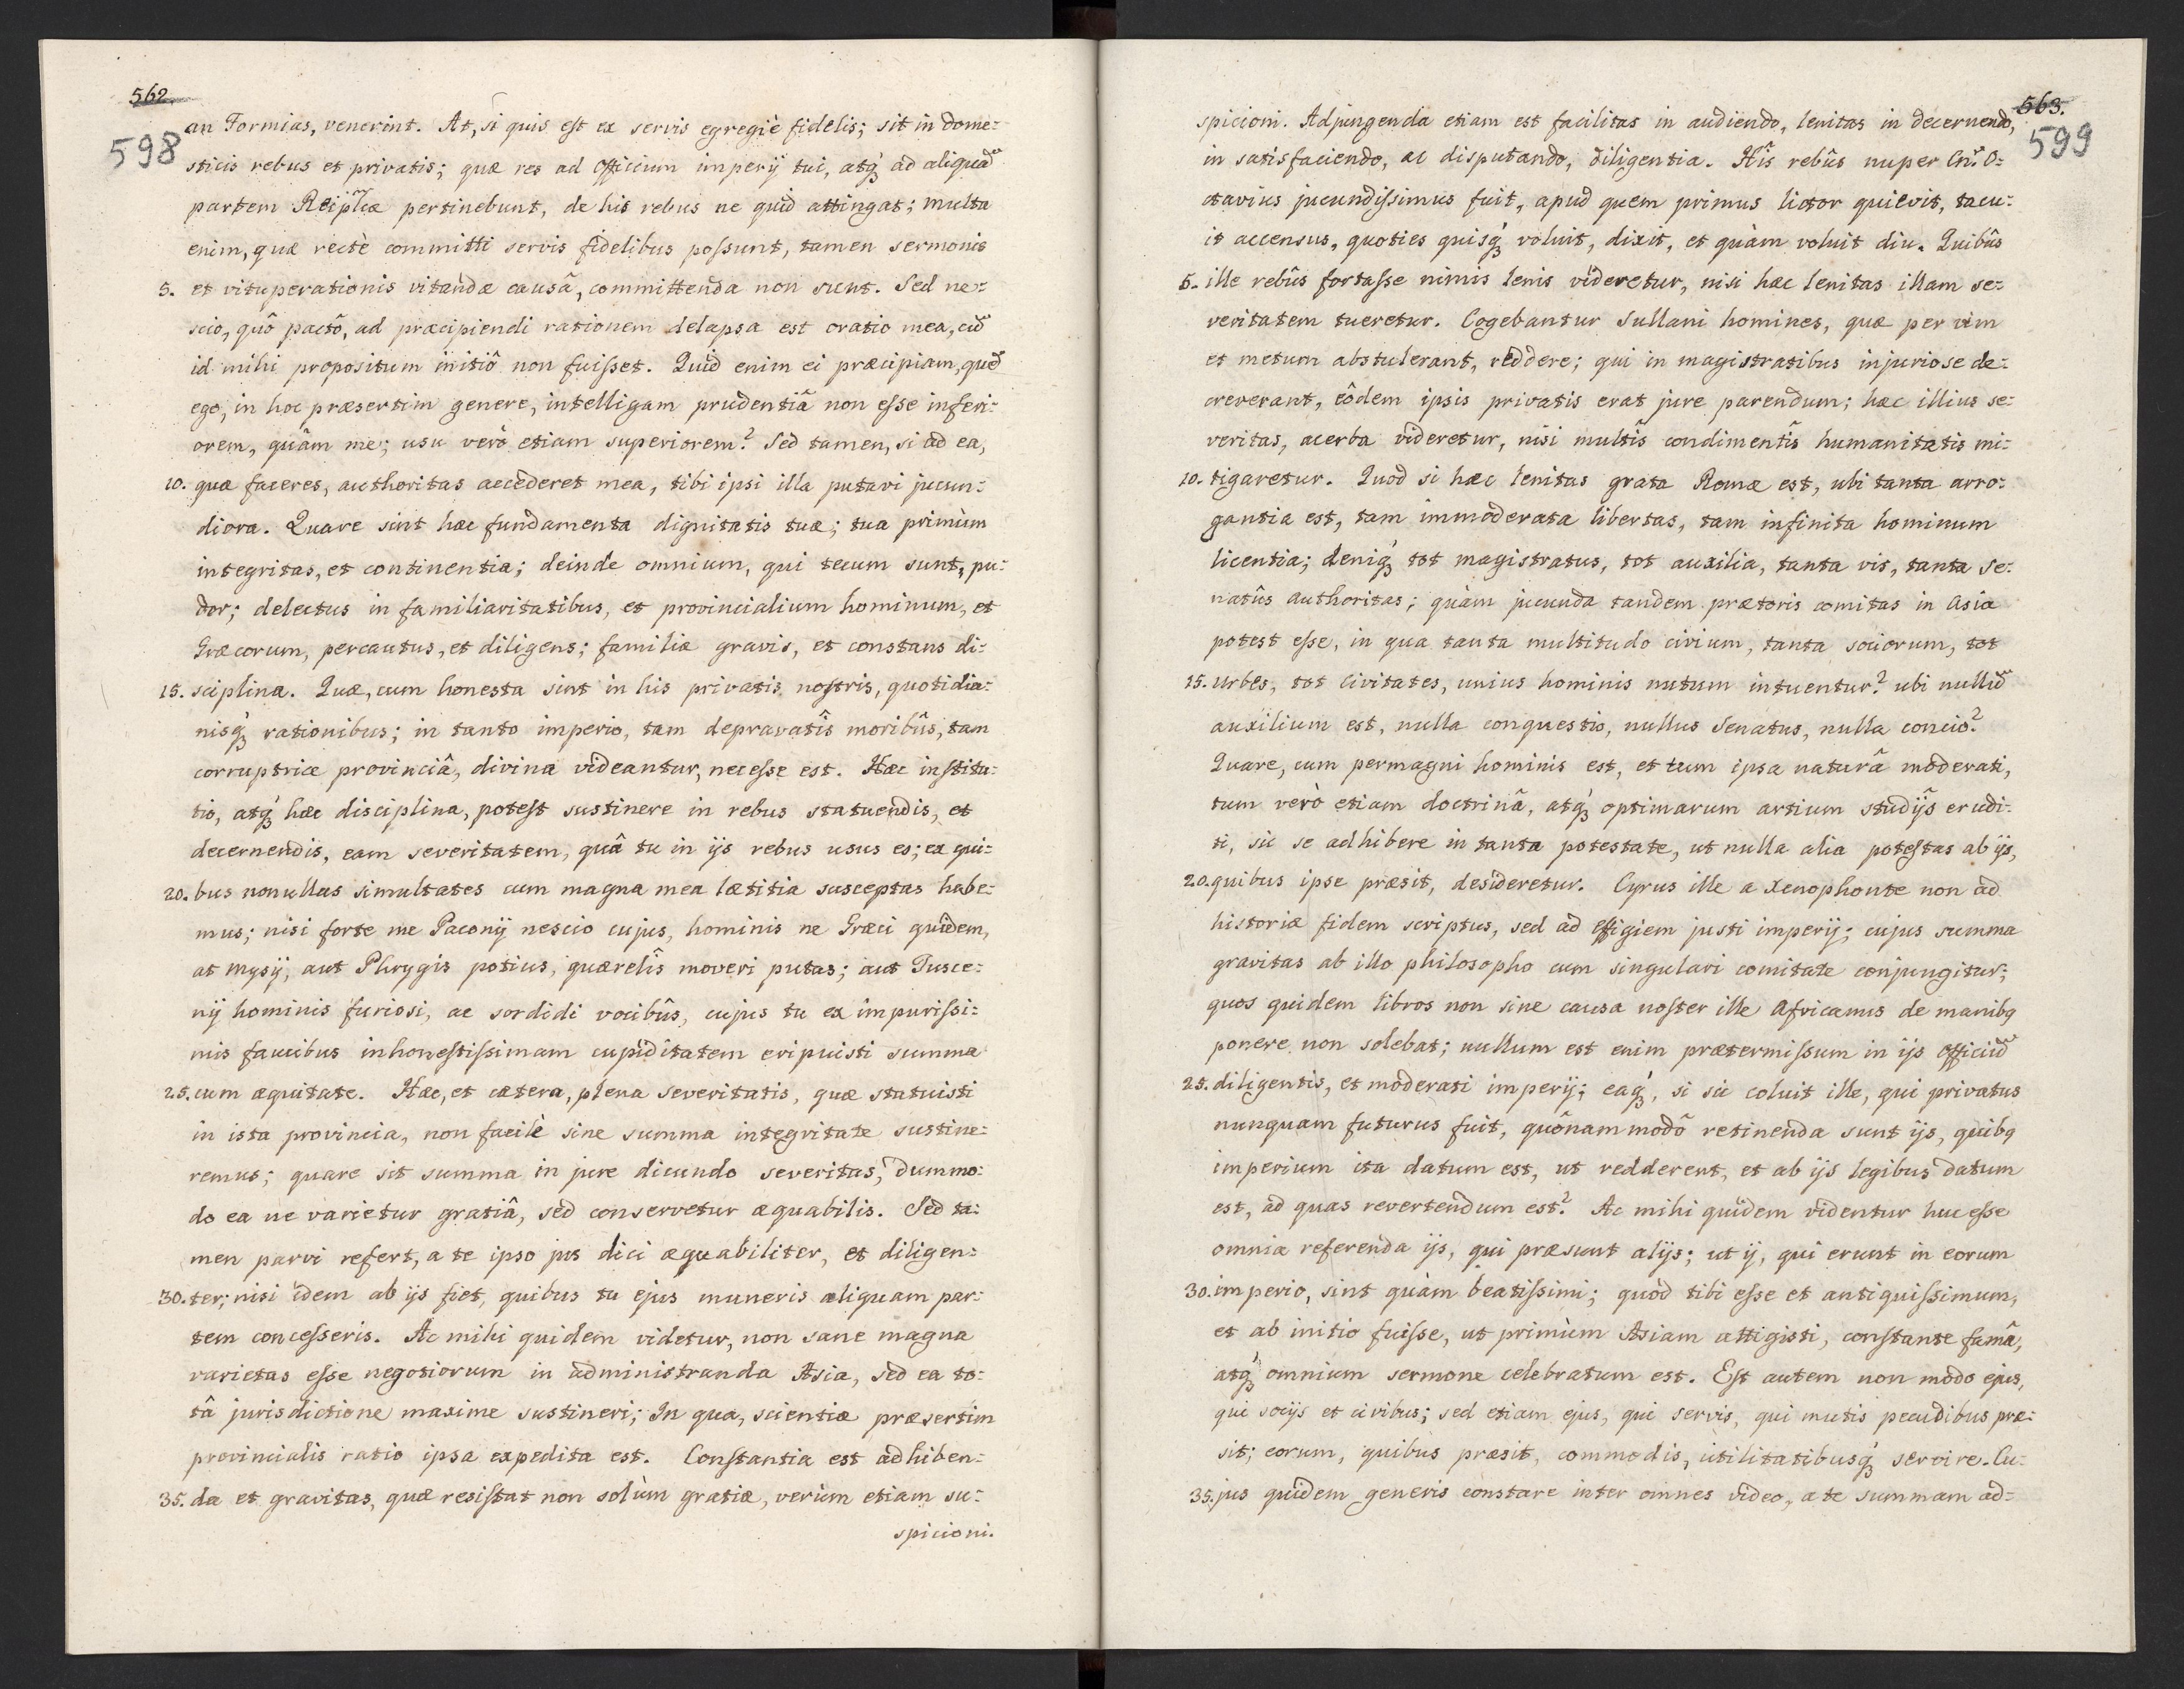 562.
598
an Formias, venerint. At, si quis est ex servis egregiè fidelis; sit in dome:
sticis rebus et privatis; quæ res ad officium imperij tui, atq́ꝫ ad aliquã
partem Reiplicæ pertinebunt, de his rebus ne quid attingat; multa
enim, quæ rectè committi servis fidelibus possunt, tamen sermonis
5. et vituperationis vitandæ causâ, committenda non sunt. Sed ne:
scio, quô pactô, ad præcipiendi rationem delapsa est oratio mea, cũ
id mihi propositum initiô non fuisset. Quid enim ei præcipiam, quẽ
ego, in hoc præsertim genere, intelligam prudentiâ non esse inferi:
orem, quàm me; usu verò etiam superiorem? Sed tamen, si ad ea,
10. quæ faceres, authoritas accederet mea, tibi ipsi illa putavi jucun:
diora. Quare sint hæc fundamenta dignitatis tuæ; tua primùm
integritas, et continentia; deinde omnium, qui tecum sunt, pu:
dor; delectus in familiaritatibus, et provincialium hominum, et
Græcorum, percautus, et diligens; familiæ gravis, et constans di:
15. sciplina. Quæ, cum honesta sint in his privatis nostris, quotidia:
nisq́ꝫ rationibus; in tanto imperio, tam depravatîs moribûs, tam
corruptrice provinciâ, divina videantur, necesse est. Hæc institu:
tio, atq́ꝫ hæc disciplina, potest sustinere in rebus statuendis, et
decernendis, eam severitatem, quâ tu in ijs rebus usus es; ex qui:
20. bus nonullas simultates cum magna mea lætitia susceptas habe:
mus; nisi forte me Paconij nescio cujus, hominis ne Græci quidem,
at Mysij, aut Phrygis potius, quærelîs moveri putas; aut Tusce:
nij hominis furiosi, ac sordidi vocibûs, cujus tu ex impurissi:
mis faucibus inhonestissimam cupiditatem eripuisti summa
25. cum æquitate. Hæc, et cætera, plena severitatis, quæ statuisti
in ista provincia, non facilè sine summa integritate sustine:
remus; quare sit summa in jure dicundo severitas, dummo:
do ea ne varietur gratiâ, sed conservetur æquabilis. Sed ta:
men parvi refert, a te ipso jus dici æquabiliter, et diligen:
30. ter; nisi idem ab ijs fiet, quibus tu ejus muneris aliquam par:
tem concesseris. Ac mihi quidem videtur, non sane magna
varietas esse negotiorum in administranda Asia, sed ea to:
tâ jurisdictione maxime sustineri; In qua, scientiæ præsertim
provincialis ratio ipsa expedita est. Constantia est adhiben:
35. da et gravitas, quæ resistat non solùm gratiæ, verùm etiam su:
spicioni.
563.
599
spicioni. Adjungenda etiam est facilitas in audiendo, lenitas in decernendo,
in satisfaciendo, ac disputando, diligentia. Hîs rebûs nuper Cn. O:
ctavius jucundissimus fuit, apud quem primus lictor quievit, tacu:
it accensus, quoties quisq́ꝫ voluit, dixit, et quàm voluit diu. Quibûs
5. ille rebûs fortasse nimis lenis videretur, nisi hæc lenitas illam se:
veritatem tueretur. Cogebantur Sullani homines, quæ per vim
et metum abstulerant, reddere; qui in magistratibus injuriose de:
creverant, eôdem ipsis privatis erat jure parendum; hæc illius se:
veritas, acerba videretur, nisi multîs condimentîs humanitatis mi:
10. tigaretur. Quod si hæc lenitas grata Romæ est, ubi tanta arro:
gantia est, tam immoderata libertas, tam infinita hominum
licentia; deniq́ꝫ tot magistratus, tot auxilia, tanta vis, tanta Se:
natûs authoritas; quàm jucunda tandem prætoris comitas in Asia
potest esse, in qua tanta multitudo civium, tanta sociorum, tot
15. urbes, tot civitates, unius hominis nutum intuentur? ubi nullũ
auxilium est, nulla conquestio, nullus Senatus, nulla concio?
Quare, cum permagni hominis est, et tum ipsa naturâ moderati,
tum verò etiam doctrinâ, atq́ꝫ optimarum artium studijs erudi:
ti, sic se adhibere in tanta potestate, ut nulla alia potestas ab ijs,
20. quibus ipse præsit, desideretur. Cyrus ille a Xenophonte non ad
historiæ fidem scriptus, sed ad effigiem justi imperij; cujus summa
gravitas ab illo philosopho cum singulari comitate conjungitur;
quos quidem libros non sine causa noster ille Africanus de manibꝗ
ponere non solebat; nullum est enim prætermissum in ijs officiũ
25. diligentis, et moderati imperij; eaq́ꝫ, si sic coluit ille, qui privatus
nunquam futurus fuit, quônam modô retinenda sunt ijs, quibꝗ
imperium ita datum est, ut redderent, et ab ijs legibus datum
est, ad quas revertendum est? Ac mihi quidem videntur huc esse
omnia referenda ijs, qui præsunt alijs; ut ij, qui erunt in eorum
30. imperio, sint quàm beatissimi; quod tibi esse et antiquissimum,
et ab initio fuisse, ut primùm Asiam attigisti, constante famâ,
atq́ꝫ omnium sermone celebratum est. Est autem non modo ejus,
qui socijs et civibus; sed etiam ejus, qui servis, qui mutis pecudibus præ:
sit; eorum, quibus præsit, commodis, utilitatibusq́ꝫ servire. Cu:
35. jus quidem generis constare inter omnes video, a te summam ad: